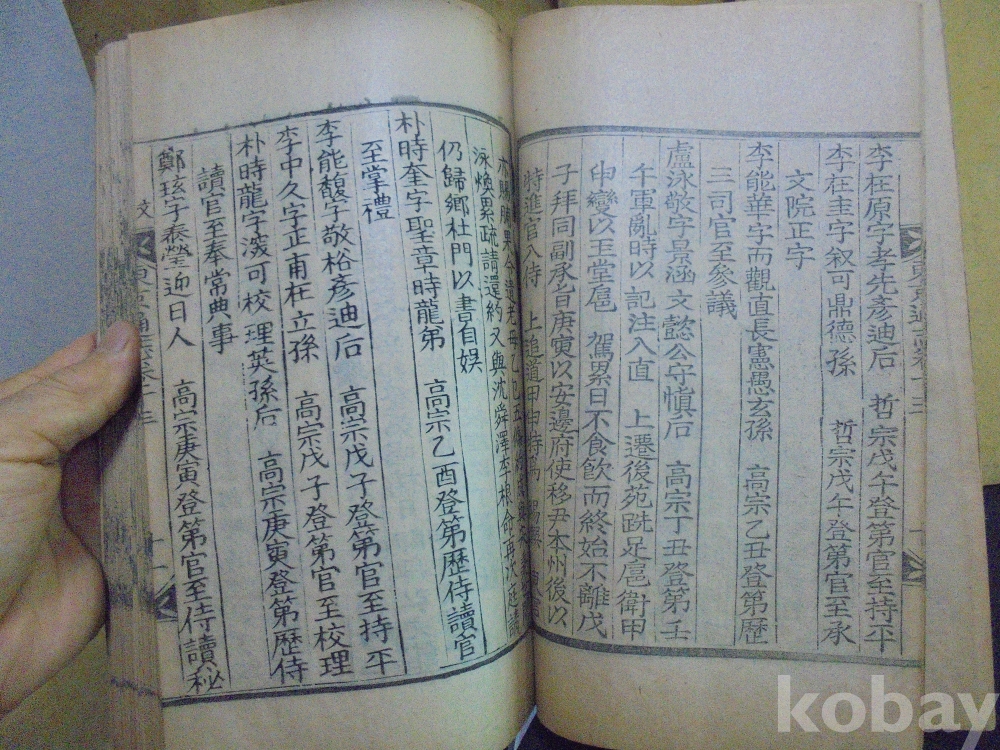 李在原字考先彥迪后 哲宗戊午登第官至持平
李在圭字叙可鼎德孫 哲宗戊午登第官至承
文院正字
李能華字而觀直長憲愚玄孫 高宗乙丑登第歷
三司官至參議
盧泳敬字景涵文懿公守愼后 高宗丁丑登第壬
午軍亂時以記注入直 上遷後苑跣足扈衛甲
申變以玉堂扈 駕累日不食飮而終始不離戊
子拜同副承旨庚寅以安邊府使移尹本州後以
特進官入侍 上追道甲申時爲
泳煥累疏請還約又與沈舜澤李根命再次廷請
仍歸鄕杜門以書自娛
朴時奎字聖章時龍弟 高宗乙酉登第歷侍讀官
至掌禮
李能馥字敬裕彥迪后 高宗戊子登第官至持平
李中久字正甫在立孫 高宗戊子登第官至校理
朴時龍字 可校理英孫后 高宗庚寅登第歷侍
讀官至奉常典事
鄭 字泰瑩迎日人 高宗庚寅登第官至侍讀秘
kobay